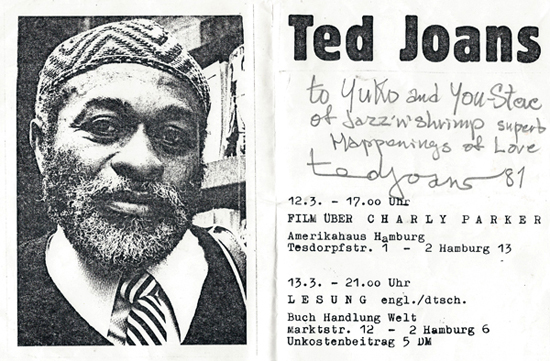 Ted Joans
to Yuko and You-Stove
of Jazz'n'shrimp superb
Happenings of Love
ted joans 81
12.3. - 17.oo Uhr
FILM ÜBER CHARLY PARKER
Amerikahaus Hamburg
Tesdorpfstr. 1 - 2 Hamburg 13
13.3. - 21.oo Uhr
LESUNG engl./dtsch.
Buch Handlung Welt
Marktstr. 12 - 2 Hamburg 6
Unkostenbeitrag 5 DM